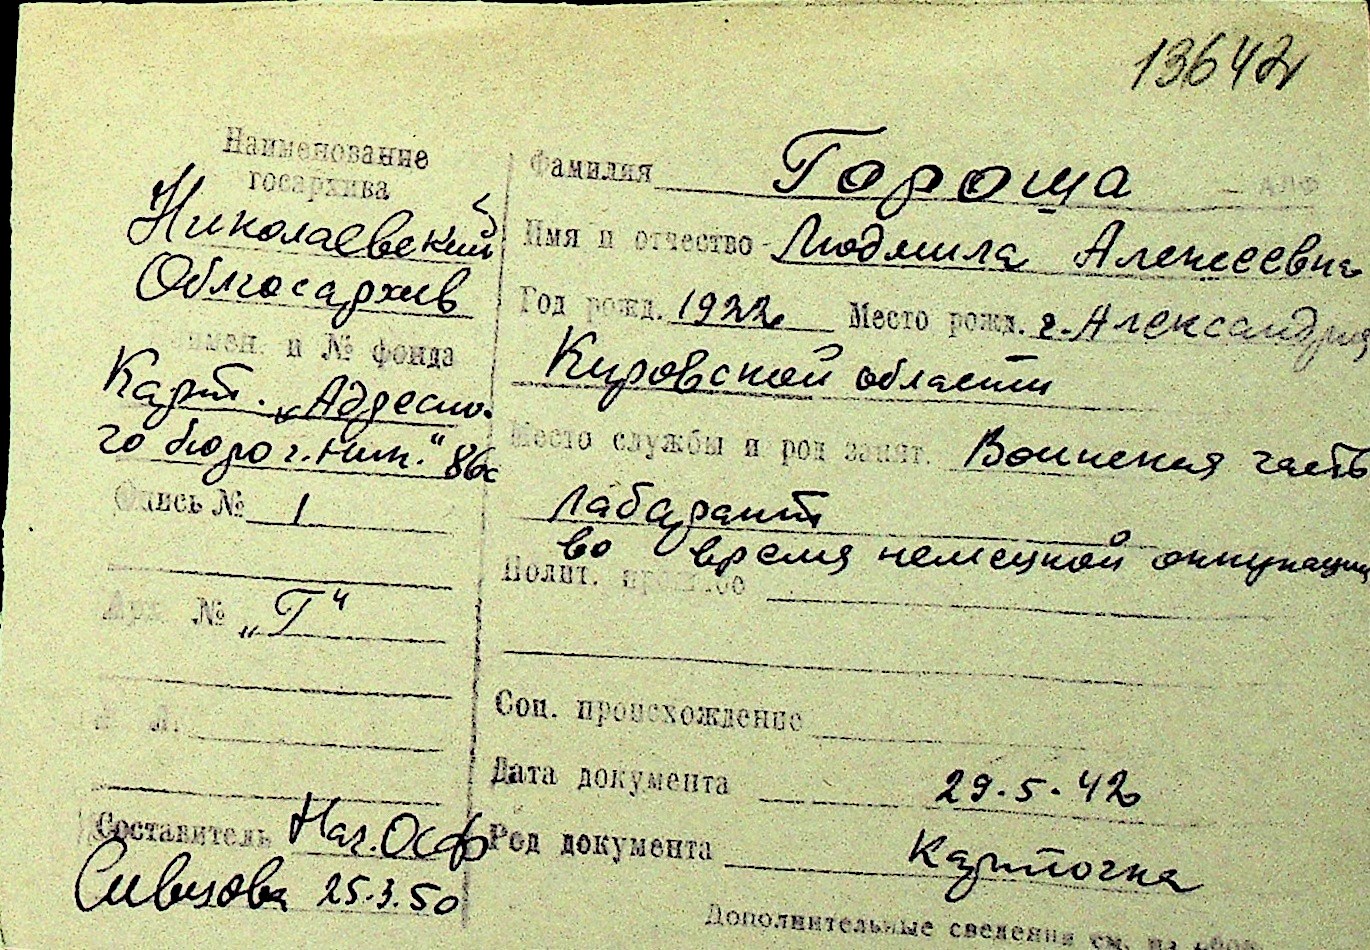 13642
Наименование
госархива
Николаевский
Облгосархив
наимен. и № фонда
Карт. „Адресно-
го бюро г. Ник." 86с
Опись № 1
Арх. № „Г"
№ л.
Составитель Нач. ОСФ
25.3.50
Фамилия Гороща АЛФ
Имя и отчество Людмила Алексеевна
Год рожд. 1922 Место рожд. г. Александрия
Кировской области
Место службы и род занят. Воинская часть
лабарант
во время немецкой оккупации
Полит. прошлое
Соц. происхождение
Дата документа 29.5.42
Род документа Карточка
Дополнительные сведения см. на